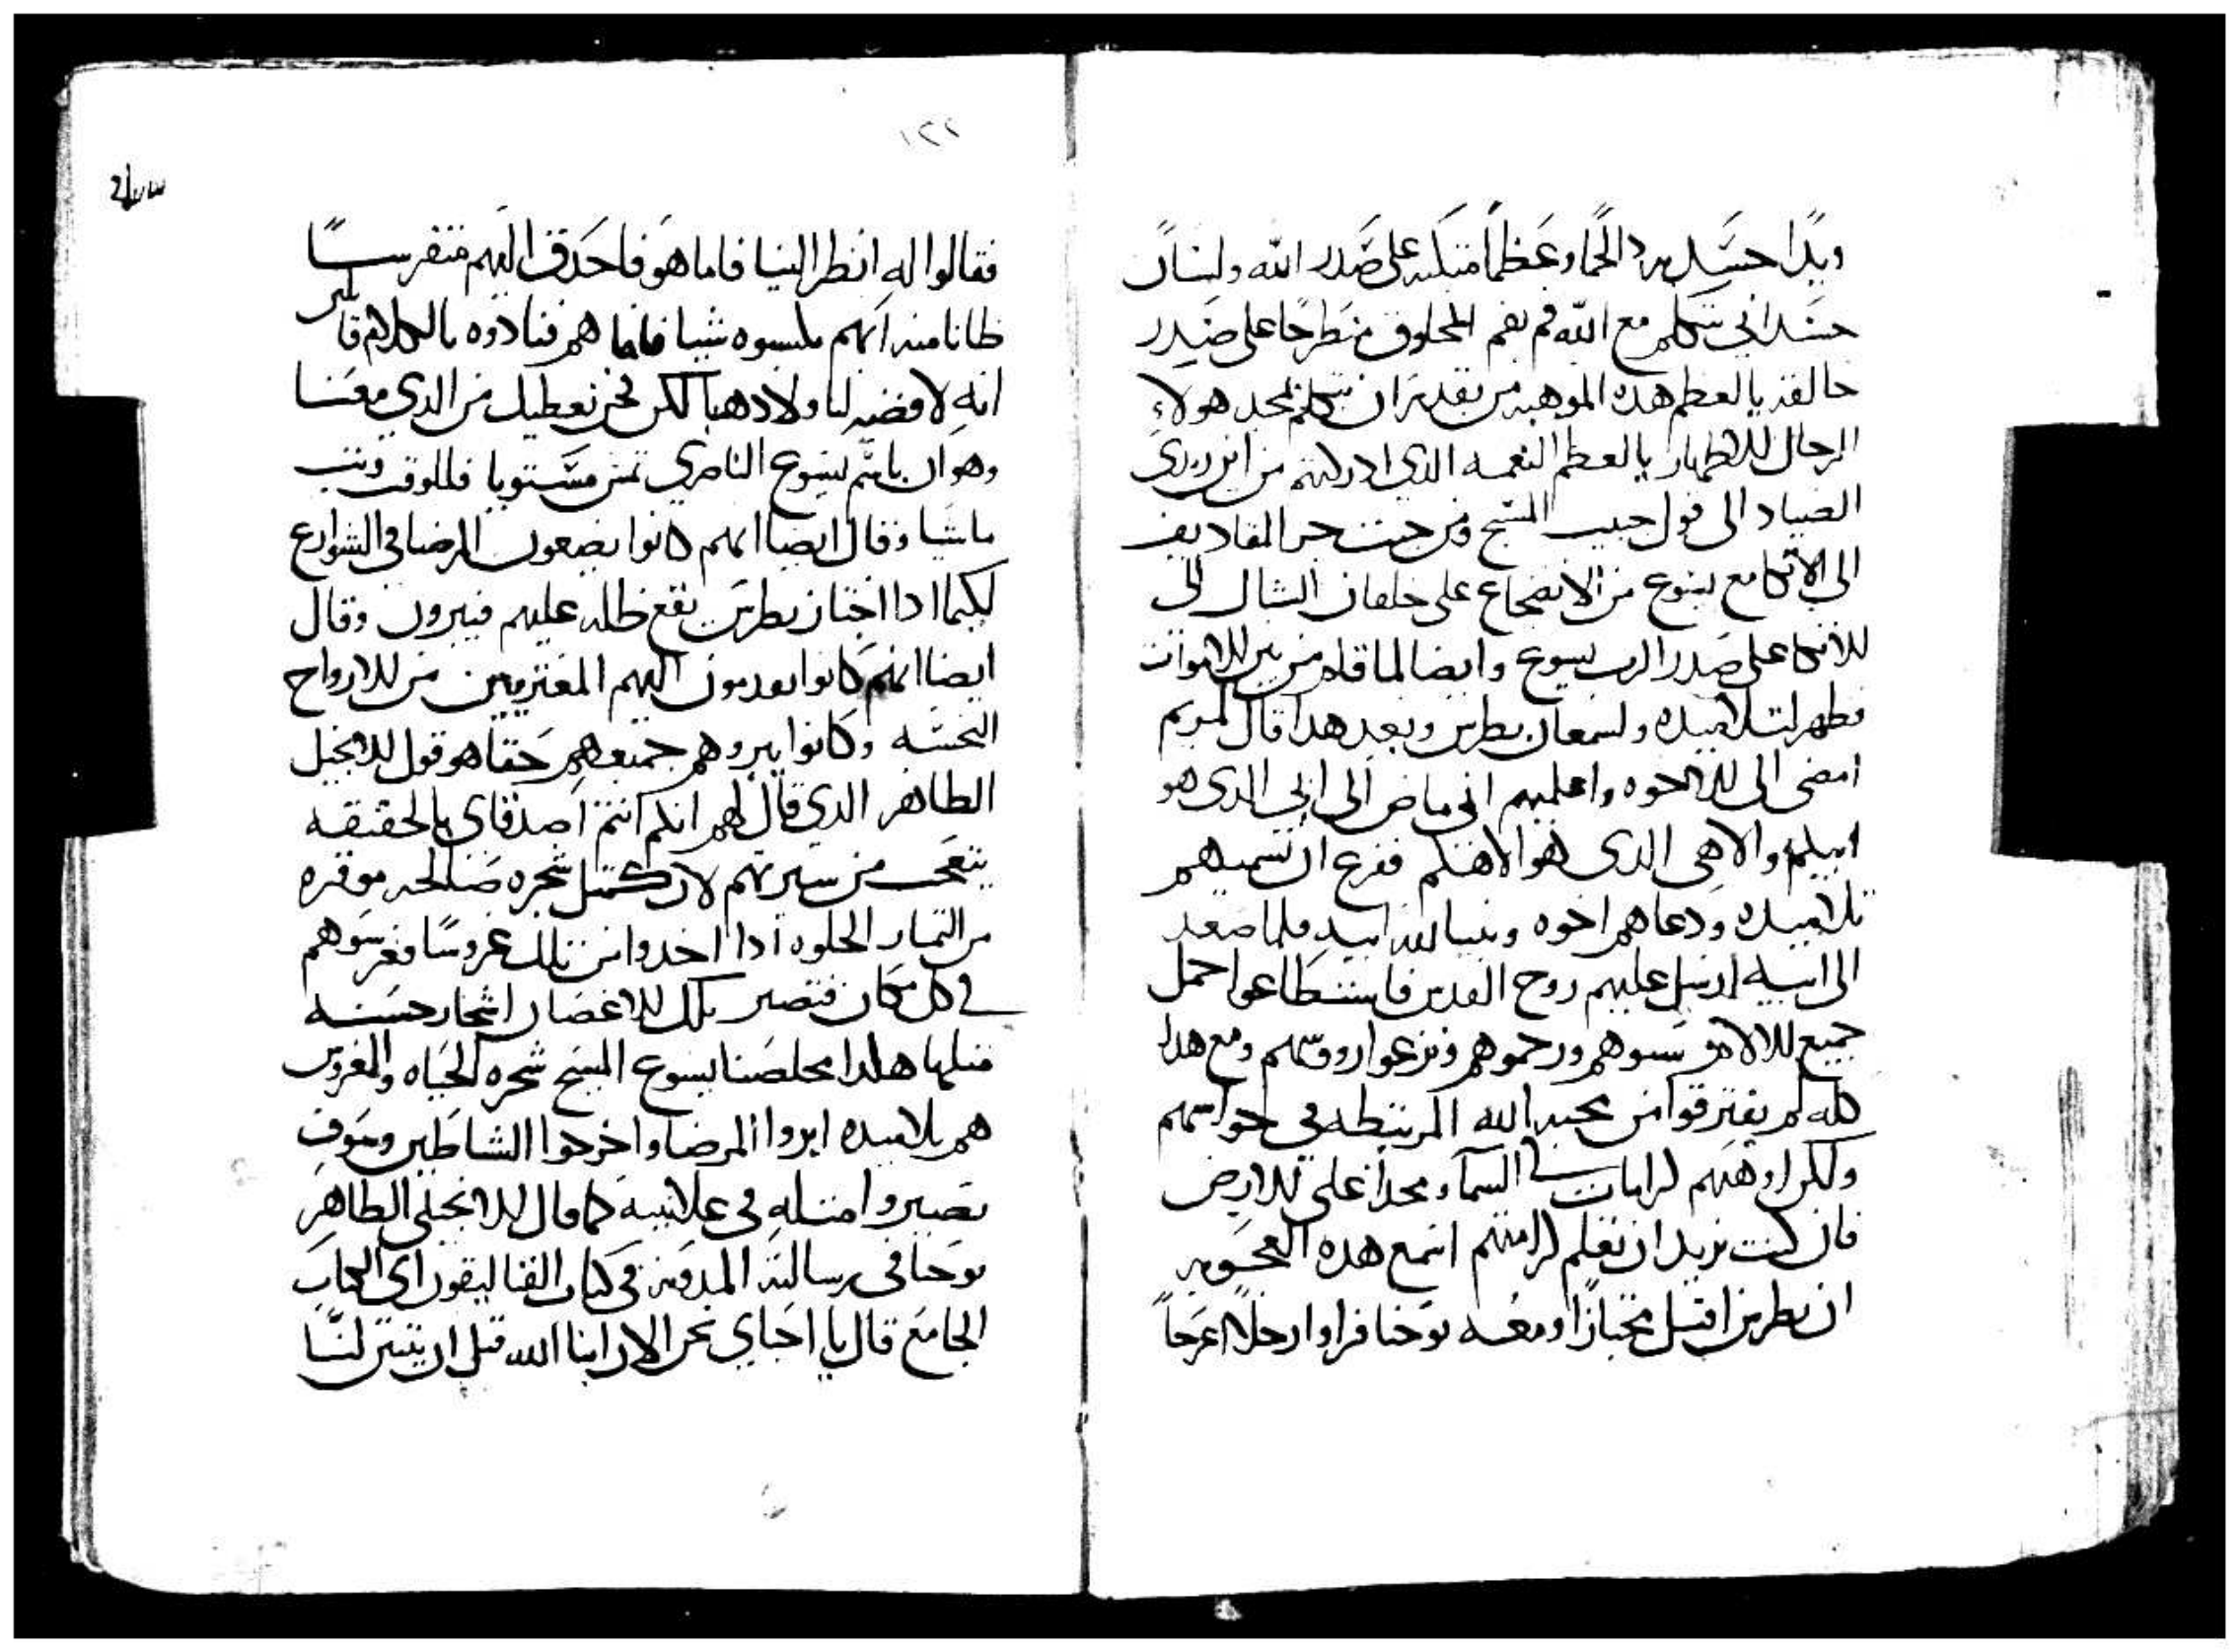 ويدا جسدانيه لحما وعظما متكيه على صدر الله ولسان
جسداني يتكلم مع الله فم بفم المخلوق منطرحا على صدر
خالقه يالعظم هذه الموهبه من يقدر ان يتكلم بمجد هولاء
الرجال الاطهار يالعظم النعمه الذي ادركتهم من ابن زبدي
الصياد الى قول حبيب المسيح ومن حيث جر المقاديف
الى الاتكا مع يسوع من الاضجاع على خلقان الشباك الى
الاتكا على صدر الرب يسوع وايضا لما قام من بين الاموات
فظهر لتلاميده ولسمعان بطرس وبعد هدا قال لمريم
امضى الى الاخوه واعلميهم اني ماض الى ابي الدى هو
ابيكم والاهى الدى هو الاهكم ففزع ان يسميهم
تلاميده ودعاهم اخوه وبنيا لله ابيه فلما صعد
الى ابيه ارسل عليهم روح القدس فاستطاعوا حمل
جميع الالام سبوهم ورجموهم ونزعوا رووسهم ومع هدا
كله لم يفترقوا من محبه الله المرتبطه في حواسهم
ولكن اوهبهم كرامات في السماء ومجدا على الارض
فان كنت تريد ان تعلم كرامتهم اسمع هده العجوبه
ان بطرس اقبل مجتازا ومعه يوحنا فراوا رجلا اعرجا
١٢٢
فقالوا له انظر الينا فاما هو فاحدق اليهم متفرسا
ظانا منه انهم يلبسوه شيا فاما هم فنادوه بالكلام قايلين
انه لا فضه لنا ولا دهبا لكن نحن نعطيك من الدي معنا
وهو ان باسم يسوع الناصري تمشى مستويا فللوقت وثب
ماشيا وقال ايضا انهم كانوا يضعون المرضا في الشوارع
لكيما ادا اجتاز بطرس يقع ظله عليهم فيبرون وقال
ايضا انهم كانوا يقدمون اليهم المعتريين من الارواح
النجسه وكانوا يبروهم جميعهم حقا هو قول الانجيل
الطاهر الدي قال لهم انكم انتم اصدقاى بالحقيقه
يتعجب من سيرتهم لان كمثل شجره صالحه موقره
من التمار الحلوه ادا اخدوا من تلك غروسا وغرسوهم
في كل مكان فتصير تلك الاغصان اشجار حسنه
مثلها هكدا مخلصنا يسوع المسيح شجره الحياه والغروس
هم تلاميده ابروا المرضا واخرجوا الشياطين وسوف
يصيروا امثاله في علانيته كما قال الانجيلى الطاهر
يوحنا في رسالته المدونه في كتاب القتاليقون اى الكتاب
الجامع قال يا احباي نحن الان ابنا الله قبل ان يتبين لنا